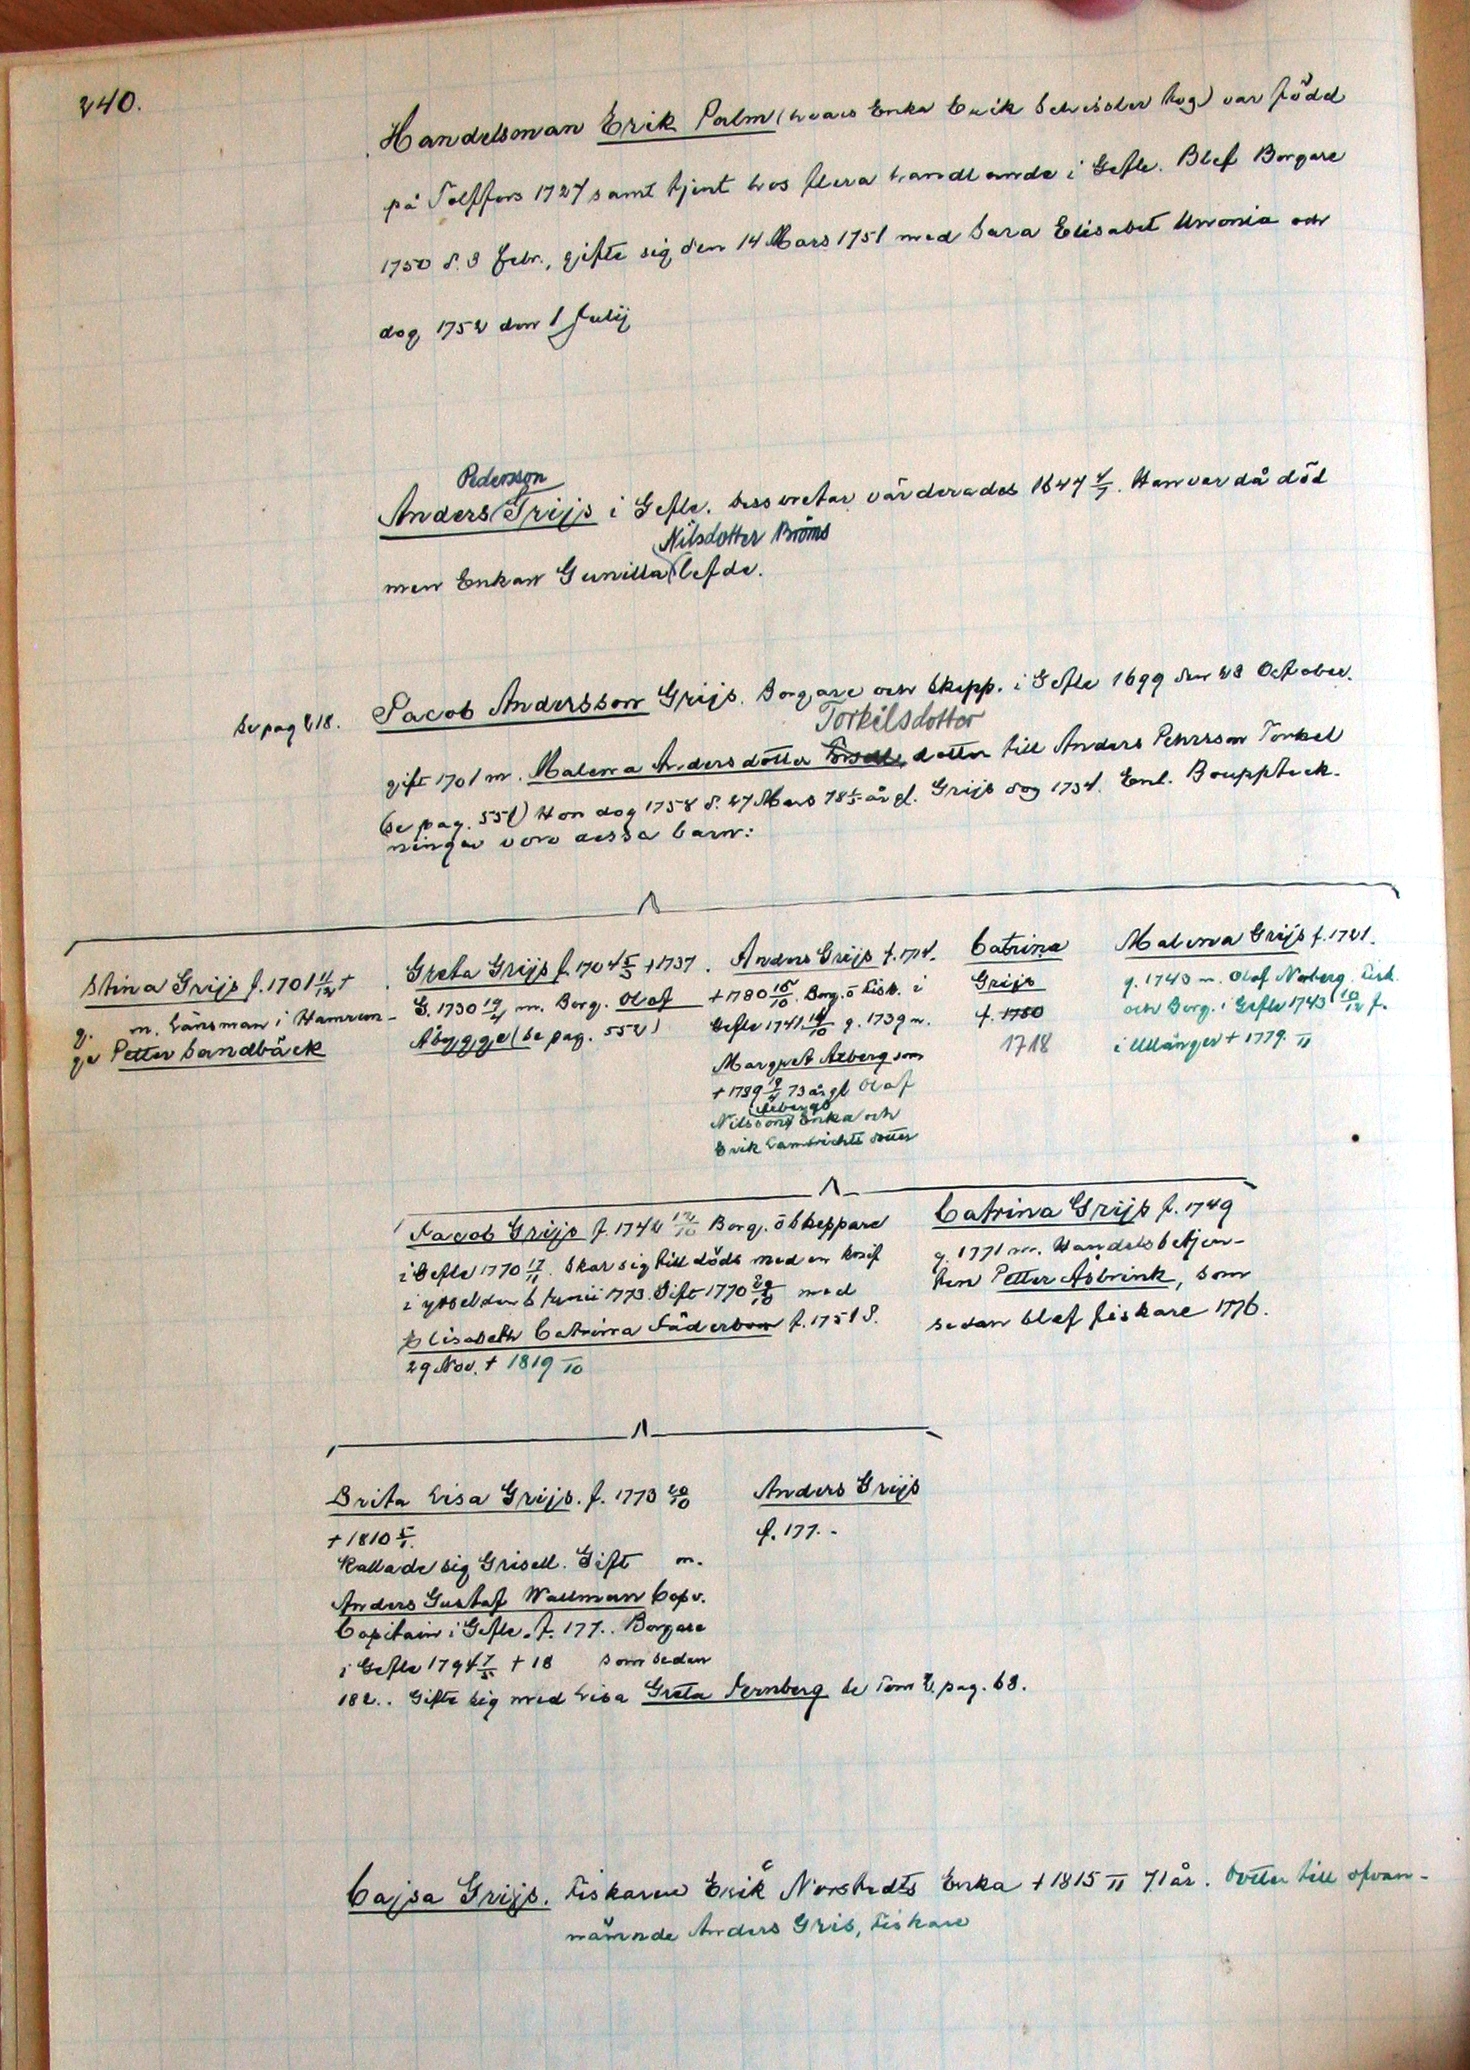 240.
Handelsman Erik Palm (hvars Enka Erik Schissler tog) var född
på Tolffors 1727 samt tjent hos flera handlande i Gefle. Blef Borgare
1750 d. 3 Febr., gifte sig den 14 Mars 1751 med Sara Elisabet Unonia och
dog 1752 den 1 Julij
Pedersson
Anders Grijs i Gefle. Dess qvetar värderades 1647 4/7. Han var då död
Nilsdotter Bröms
men Enkan Gunilla lefde.
Se pag 218.
Jacob Andersson Grijs. Borgare och Skepp. i Gefle 1699 den 23 October.
Torkilsdotter
gift 1701 m. Malena Andersdotter dotter till Anders Pehrsson Torkel
(se pag. 551) Hon dog 1758 d. 27 Mars 78 1/5 år gl. Grijs dog 1734. Enl. Bouppteck-
ningar voro dessa barn:
Stina Grijs f. 1701 11/12 +
g. m. Länsman i Hamrun-
ge Petter Sandbäck
Greta Grijs f. 1704 5/3 +1737.
G. 1730 19/4 m. Borg. Olof
Åbygge (se pag. 552)
Anders Grijs f. 1714.
+1780 15/10. Borg. o Fisk. i
Gefle 1741 19/10 g. 1739 m.
Margret Axberg som
+1789 19/4 73 år gl Olof
Nilssons Enka och
Erik Lambrichts dotter
Catrina
Grijs
f. 1750
1718
Malena Grijs f. 1721.
g. 1743 m. Olof Norberg. Fisk.
och Borg. i Gefle 1743 10/12 f.
i Ullånger + 1779. 11
Jacob Grijs f. 1742 12/10 Borg. o Skeppare
i Gefle 1770 17/11. Skar sig till döds med en knif
i yrsel den 6 Junii 1773. Gift 1770 29/10 med
Elisabeth Catrina Söderbom f. 1751 d.
29 Nov. + 1819 10
Catrina Grijs f. 1749
g. 1771 m. Handelsbetjen-
ten Petter Åsbrink, som
sedan blef fiskare 1776.
Brita Lisa Grijs. f. 1773 20/10
+ 1810 5/1.
Kallade sig Grisell. Gift m.
Anders Gustaf Wallman Copv.
Capitain i Gefle. f. 177.. Borgare
i Gefle 1794 7/5 + 18 som sedan
182.. Gifte sig med Lisa Greta Fernberg se Tom 2 pag. 68.
Anders Grijs
f. 177..
Cajsa Grijs. Fiskaren Erik Norstedts Enka + 1815 11 71 år. Dotter till ofvan-
nämnde Anders Gris, Fiskare